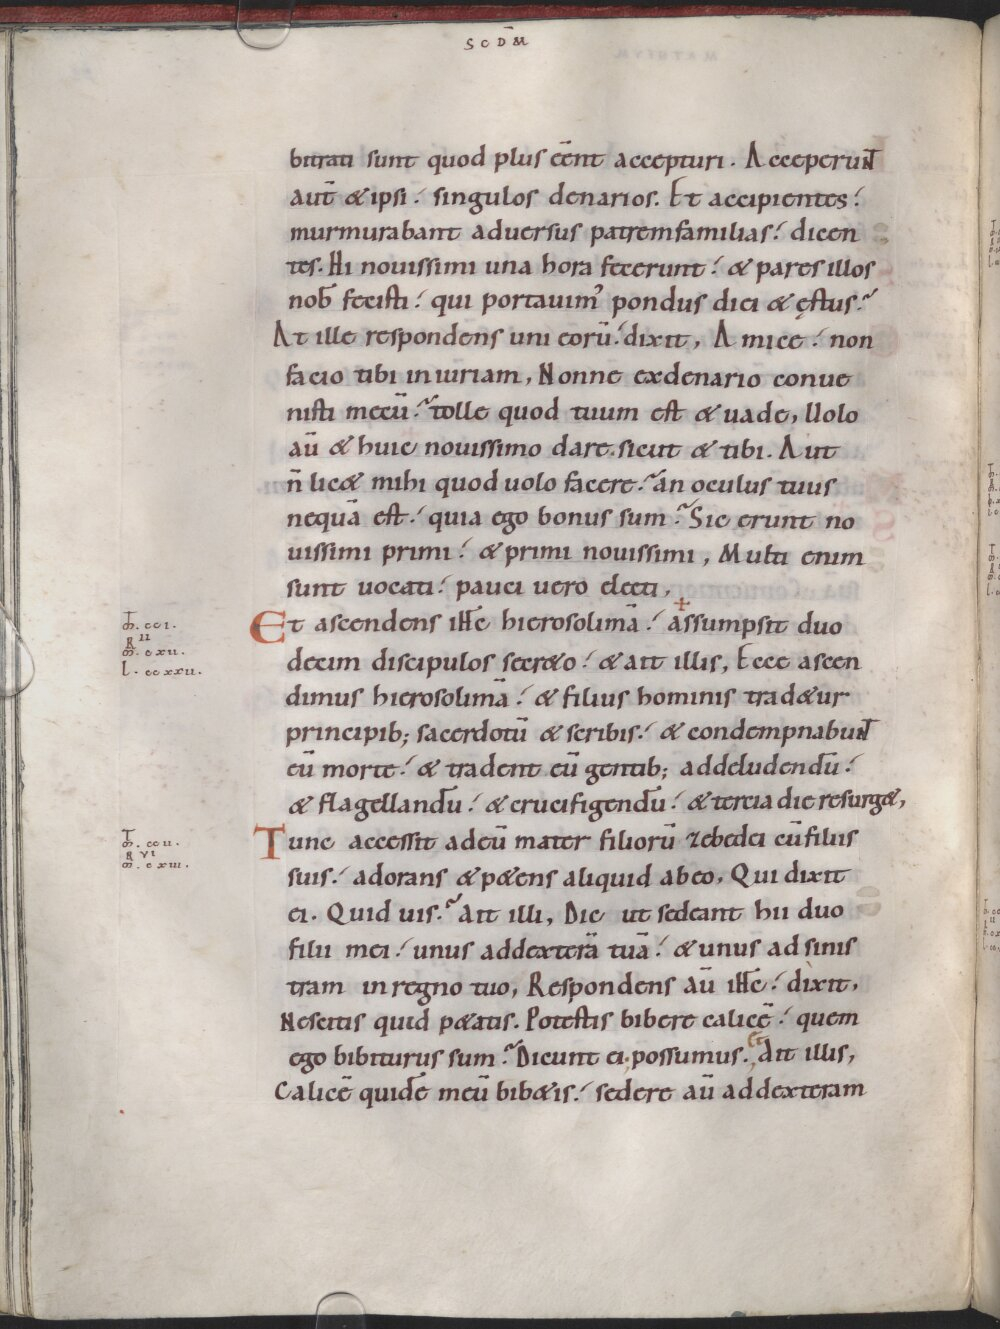 SCDM̄
bitrati sunt quod plus eēnt accepturi. Acceperunt
aut̄ & ipsi. singulos denarios. Et accipientes.
murmurabant aduersus patremfamilias. dicen
tes. Hi nouissimi una hora fecerunt. & pares illos
nob̄ fecisti. qui portauim' pondus diei & ęstus.
At ille respondens uni eorū. dixit, Amice. non
facio tibi iniuriam, Nonne exdenario conue
nisti mecū. tolle quod tuum est & uade, Uolo
aū & huic nouissimo dare. sicut & tibi. Aut
n̄ lic& mihi quod uolo facere. an oculus tuus
nequā est. quia ego bonus sum. Sic erunt no
uissimi primi. & primi nouissimi, Multi enim
sunt uocati. pauci uero electi,
Et ascendens iħc hierosolimā. assumpsit duo
decim discipulos secr&o. & ait illis, Ecce ascen
dimus hierosolimā. & filius hominis trad&ur
principib; sacerdotū & scribis. & condempnabunt
eū morte. & tradent eū gentib; addeludendū.
& flagellandū. & crucifigendū. & tercia die resurg&,
Tunc accessit adeū mater filiorū zebedei cū filiis
suis. adorans & p&ens aliquid abeo, Qui dixit
ei. Quid uis. Ait illi, Dic ut sedeant hii duo
filii mei. unus addexterā tuā. & unus adsinis
tram inregno tuo, Respondens aū iħc. dixit,
Nescitis quid p&atis. Potestis bibere calicē. quem
ego bibiturus sum. Dicunt ei. possumus. Et Ait illis,
Calicē quidē meū bib&is. sedere aū addexteram
cci.
R II
cxii.
L. ccxxii.
ccii.
R VI
cxiii.